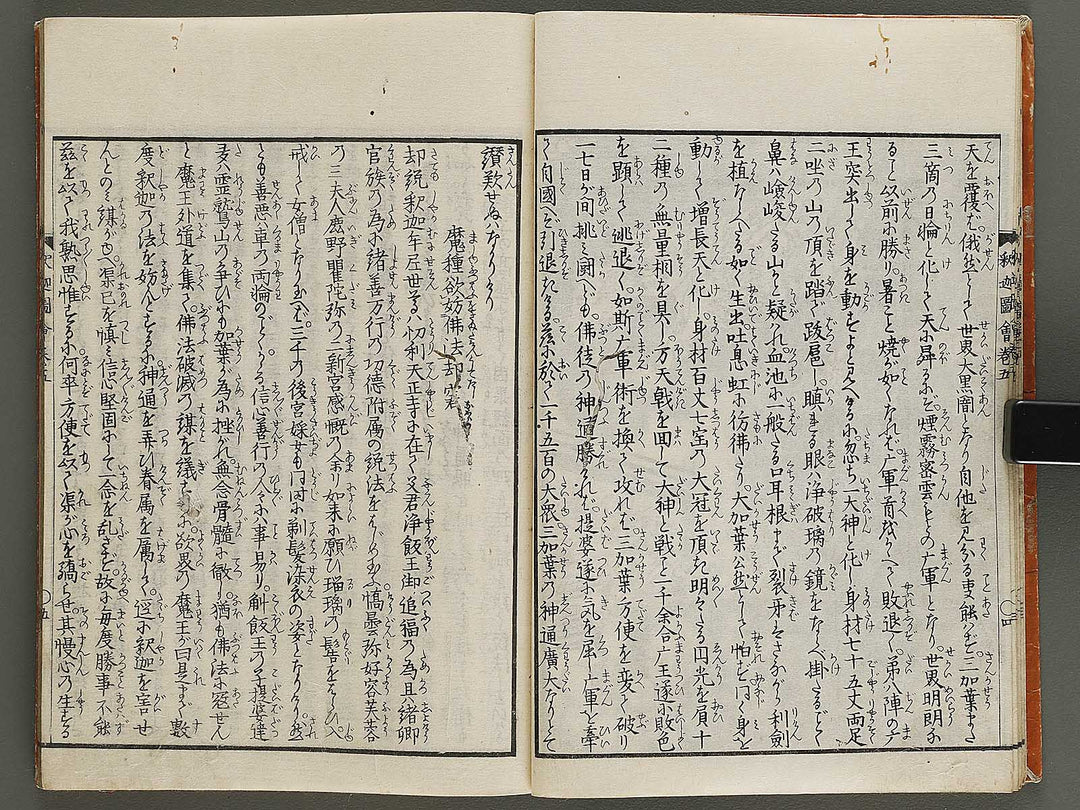 天を覆へば俄然として世界大黒闇となり自他を見分る事能はず三加葉また
三箇の日輪と化して天に昇るにぞ煙霧密雲もとの广軍となり世界明朗な
ること以前に勝り暑こと焼が如くなれば广軍首伐かへて敗退く第八陣の
王突出して身を動すよと見へけるに忽ち一大神と化し身材七十五丈両足
二坐の山の頂を踏で跋扈し瞋れる眼は浄破璃の鏡をならべ掛たるごとく
鼻は峻々たる山かと疑れ血池に般たる口耳根まで裂牙はさながら利劔
を植ならべたる如く生出吐息虹に彷彿たり大加葉公然として怕を同く身を
動して増長天と化し身材百丈七宝の大冠を頂た明々たる円光を肩十
二種の無量相を具し方天戟を回して大神と戦こと二千余合广王遂に敗色
を顕して逃退く如斯广軍術を換て攻れば三加葉方便を変て破り
一七日が間挑み闘へども佛徒の神通勝れば提婆遂に気を屈し广軍を牽
て自國へぞ引退たる茲に於て一千五百の大衆三加葉の神通廣大なりとて
釈迦圖會巻五
〇四
讃歎せぬはなかりけり
魔種欲妨佛法却定
却説釈迦牟尼世尊は忉利天正寺に在して父君浄飯王御追福の為且緒卿
官族の為に諸善万行の功德附属の説法をはじめ玉へば憍曇弥好容芙蓉
の三夫人鹿野瞿陀弥の二新宮感慨の余り如来に願ひ瑠璃の髻をはらひ入
戒して女僧となり玉へば三千の後宮婇女も同時に剃髪染衣の姿となりけり然
とも善悪は車の両輪のごとくにて信心善行の人々に事易り斛飯王の子提婆達
多は霊鷲山の争ひにも加葉が為に挫かれ無念骨髄に徹し猶も佛法に冦せん
と魔王外道を集て佛法破滅の謀を議しけるに欲界の魔王が曰是まで数
度釈迦の法を妨んとするに神通を弄び眷属を属して逕に釈迦を害せ
んとのみ謀るがゆへ渠己を慎み信心堅固にして一念を乱さず故に毎度勝事不能
茲を以て我熟思惟するに何卒方便を以て渠が心を蕩せ其慢心の生ずる
釈迦圖會巻五
〇五